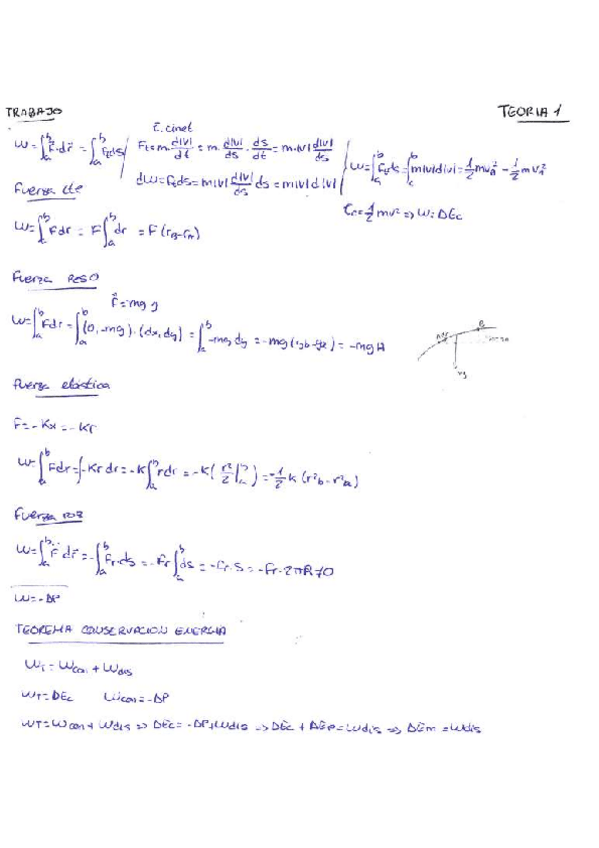 TRABAJO
TEORIA 1
E. cinet
W = ∫_a^b F·dr = ∫_a^b Ftds / Ft = m·d|v|/dt = m·d|v|/ds · ds/dt = m·|v| d|v|/ds
dW = Ftds = m|v| d|v|/ds ds = m|v| d|v|
W = ∫_a^b Ftds = ∫_a^b m|v|d|v| = 1/2 mv_B² - 1/2 mv_A²
Ec = 1/2 mv² => W = DEc
Fuerza cte
W = ∫_a^b Fdr = F ∫_a^b dr = F (r_B - r_A)
Fuerza PESO
F = mg y
W = ∫_a^b Fdr = ∫_a^b (0, -mg)·(dx, dy) = ∫_a^b -mg dy = -mg (yb - ya) = -mg H
Fuerza elástica
F = -Kx = -Kr
W = ∫_a^b Fdr = ∫-Kr dr = -K ∫_a^b rdr = -K (r²/2 |_a^b) = -1/2 K (r²b - r²a)
Fuerza roz
W = ∫_a^b F dr = -∫_a^b Fr·ds = -Fr ∫_a^b ds = -Fr·S = -Fr·2πR ≠ 0
W = -DP
TEOREMA CONSERVACION ENERGIA
WT = Wcon + Wdis
WT = DEc Wcon = -DP
WT = Wcon + Wdis => DEc = -DP + Wdis => DEc + DEp = Wdis => DEm = Wdis